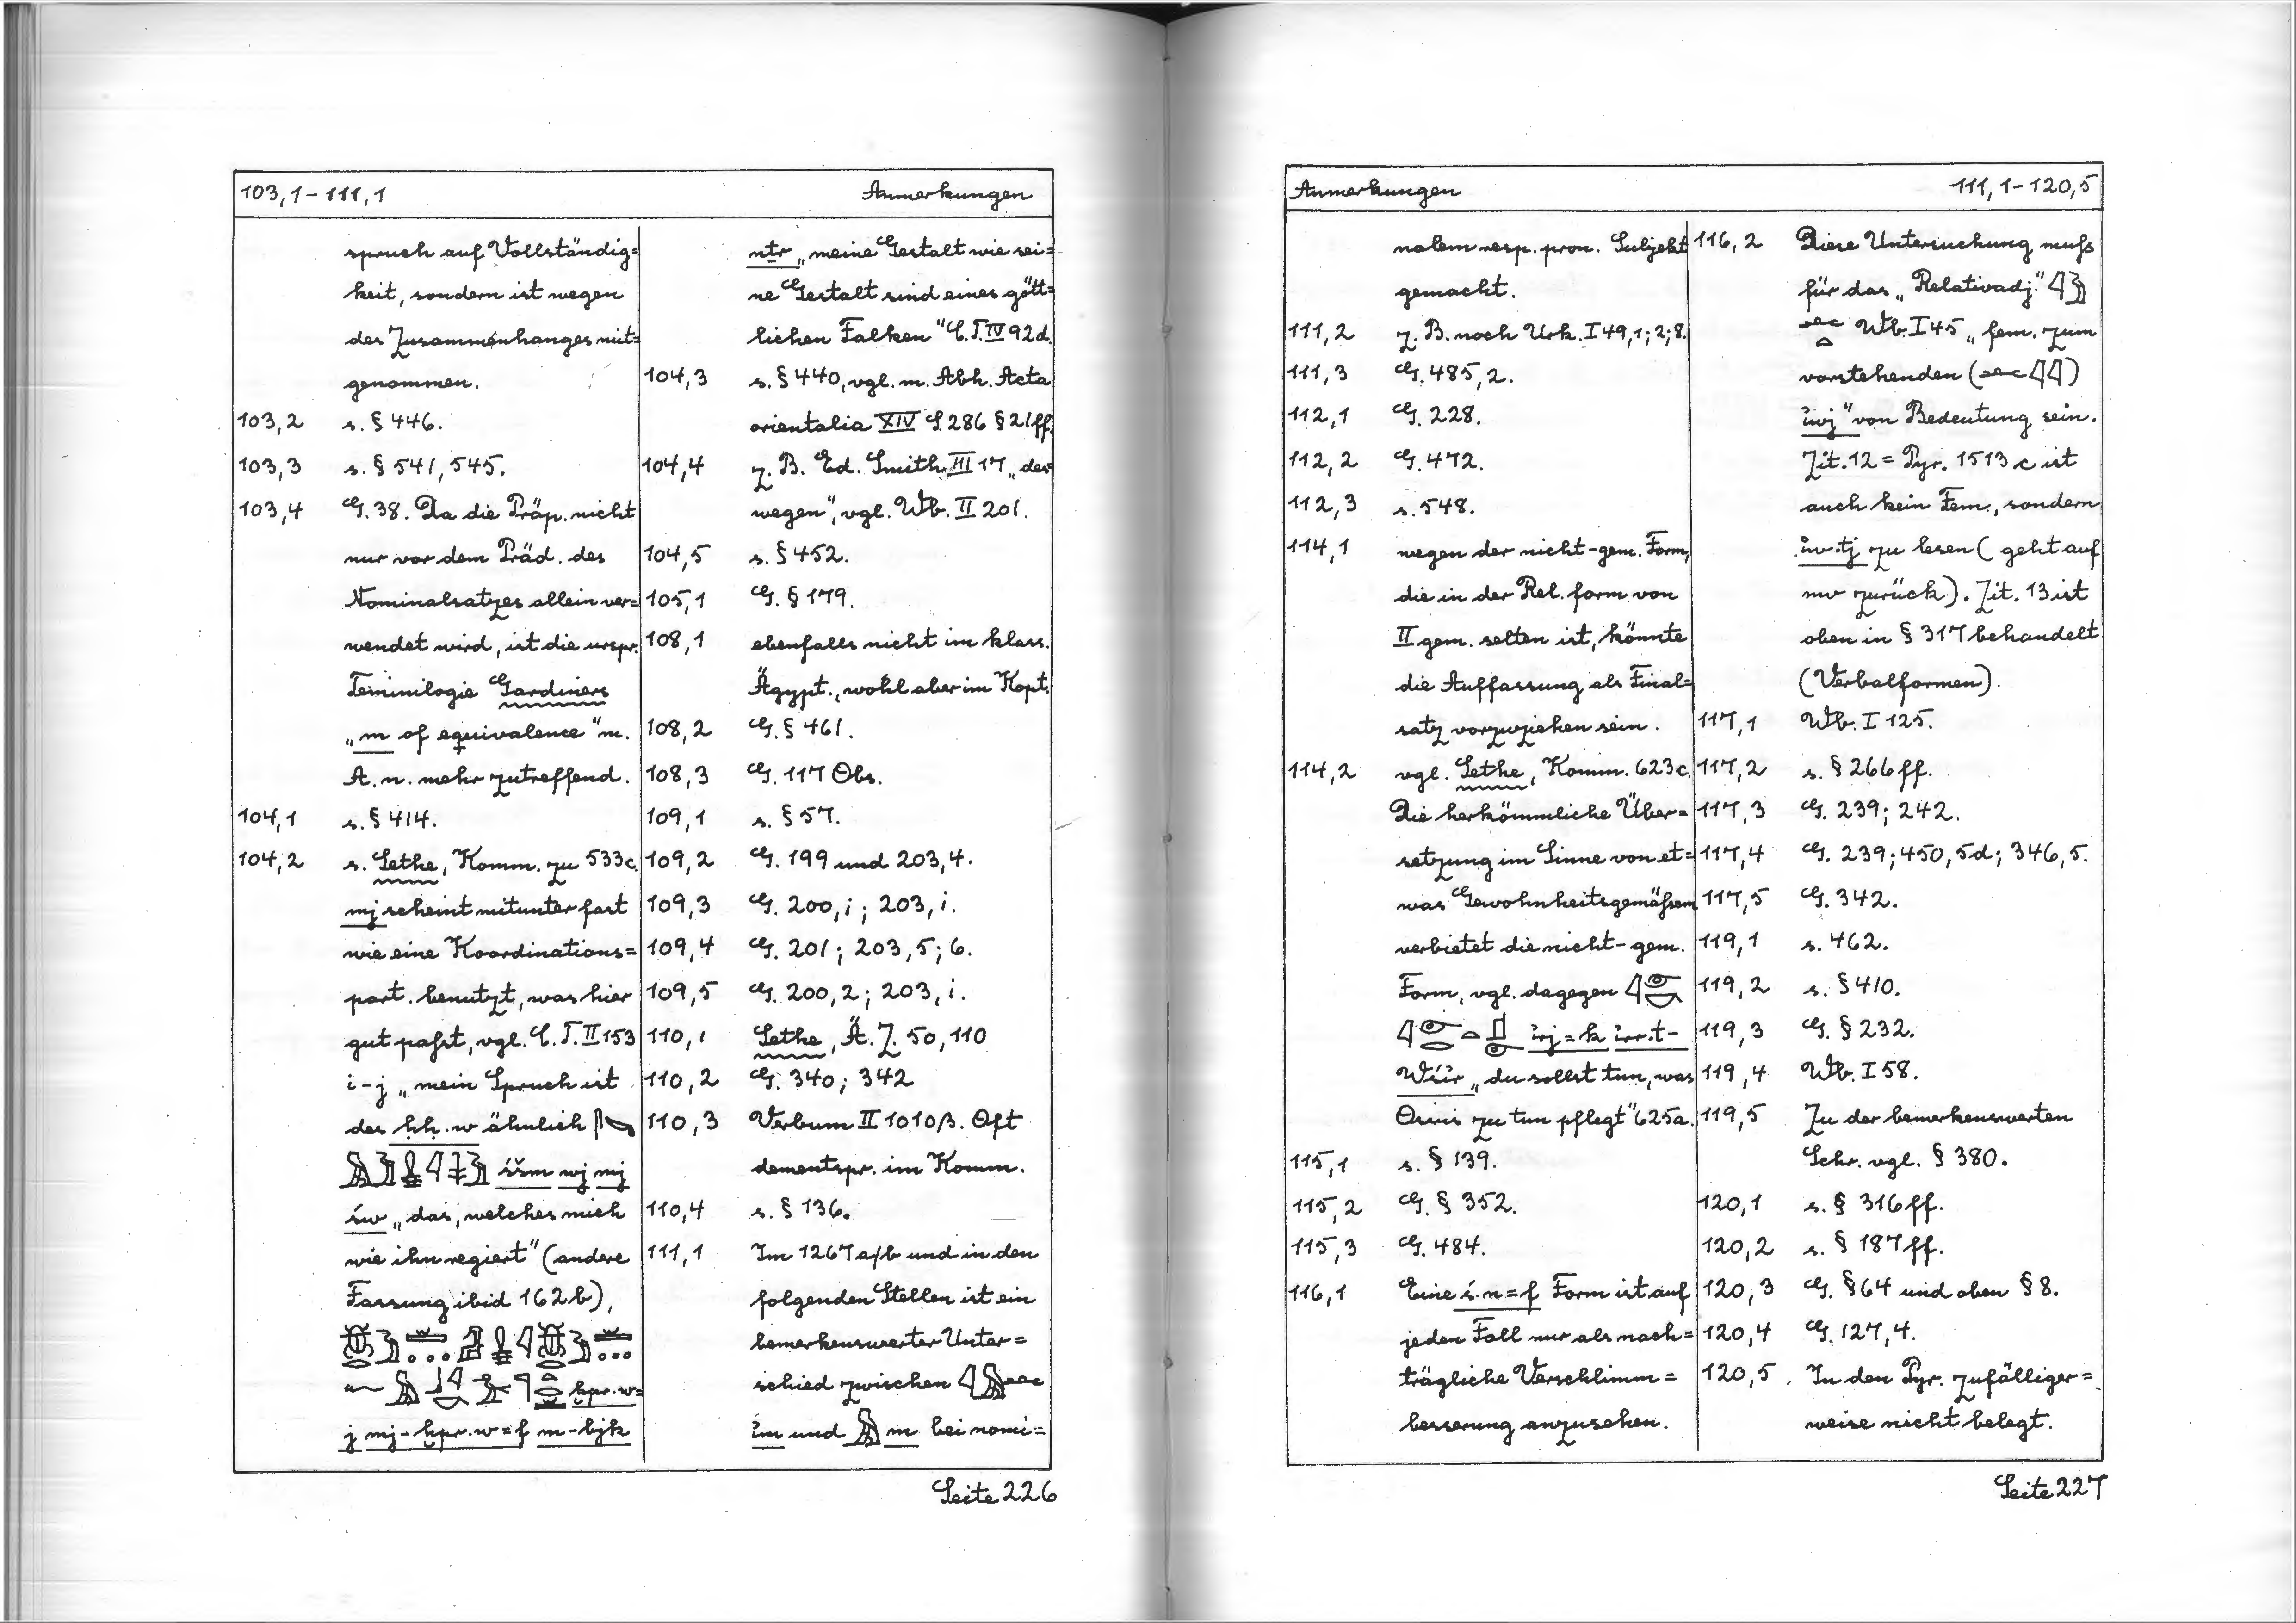 103,1-111,1 Anmerkungen
spruch auf Vollständig=
keit, sondern ist wegen
des Zusammenhanges mit=
genommen.
103,2 s. § 446.
103,3 s. § 541, 545.
103,4 G. 38. Da die Präp. nicht
nur vor dem Präd. des
Nominalsatzes allein ver=
wendet wird, ist die urspr.
Teminilogie Gardiners
„m of equivalence" m.
A. n. mehr zutreffend.
104,1 s. § 414.
104,2 s. Sethe, Komm. zu 533c.
mj scheint mitunter fast
wie eine Koordinations=
part. benutzt, was hier
gut paßt, vgl. C.T. II 153
i-j „mein Spruch ist
des ḥḥ.w ähnlich
śšm wj mj
św „das, welches mich
wie ihn regiert" (andere
Fassung ibid 162b),
ḫpr.w=
j mj-ḫpr.w=f m-bjk
nṯr „meine Gestalt wie sei=
ne Gestalt sind eines gött=
lichen Falken" C.T. IV 92d.
104,3 s. § 440, vgl. m. Abh. Acta
orientalia XIV S. 286 § 21ff.
104,4 z. B. Ed. Smith III 17 „des=
wegen", vgl. Wb. II 201.
104,5 s. § 452.
105,1 G. § 179.
108,1 ebenfalls nicht im klass.
Ägypt., wohl aber im Kopt.
108,2 G. § 461.
108,3 G. 117 Obs.
109,1 s. § 57.
109,2 G. 199 und 203,4.
109,3 G. 200,i; 203,i.
109,4 G. 201; 203,5; 6.
109,5 G. 200,2; 203,i.
110,1 Sethe, Ä. Z. 50,110
110,2 G. 340; 342
110,3 Verbum II 1010β. Oft
dementspr. im Komm.
110,4 s. § 136.
111,1 Im 1267a/b und in den
folgenden Stellen ist ein
bemerkenswerter Unter=
schied zwischen
ỉm und m bei nomi=
Seite 226
Anmerkungen 111,1-120,5
nalem resp. pron. Subjekt
gemacht.
111,2 z. B. noch Urk. I 49,1; 2; 8.
111,3 G. 485,2.
112,1 G. 228.
112,2 G. 472.
112,3 s. 548.
114,1 wegen der nicht-gem. Form,
die in der Rel. form von
II gem. selten ist, könnte
die Auffassung als Final=
satz vorzuziehen sein.
114,2 vgl. Sethe, Komm. 623c.
Die herkömmliche Über=
setzung im Sinne von et=
was Gewohnheitsgemäßem
verbietet die nicht-gem.
Form, vgl. dagegen
ỉrj=k ỉrr.t-
Wśỉr „du sollst tun, was
Osiris zu tun pflegt" 625a.
115,1 s. § 139.
115,2 G. § 352.
115,3 G. 484.
116,1 Eine ś.n=f Form ist auf
jeden Fall nur als nach=
trägliche Verschlimm=
besserung anzusehen.
116,2 Diese Untersuchung muß
für das „Relativadj."
Wb. I 45 „fem. zum
vorstehenden ( )
ỉwj" von Bedeutung sein.
Zit. 12 = Pyr. 1513c ist
auch kein Fem., sondern
ỉw.tj zu lesen (geht auf
mw zurück). Zit. 13 ist
oben in § 317 behandelt
(Verbalformen).
117,1 Wb. I 125.
117,2 s. § 266ff.
117,3 G. 239; 242.
117,4 G. 239; 450,5d; 346,5.
117,5 G. 342.
119,1 s. 462.
119,2 s. § 410.
119,3 G. § 232.
119,4 Wb. I 58.
119,5 Zu der bemerkenswerten
Schr. vgl. § 380.
120,1 s. § 316ff.
120,2 s. § 187ff.
120,3 G. § 64 und oben § 8.
120,4 G. 127,4.
120,5 In den Pyr. zufälliger=
weise nicht belegt.
Seite 227